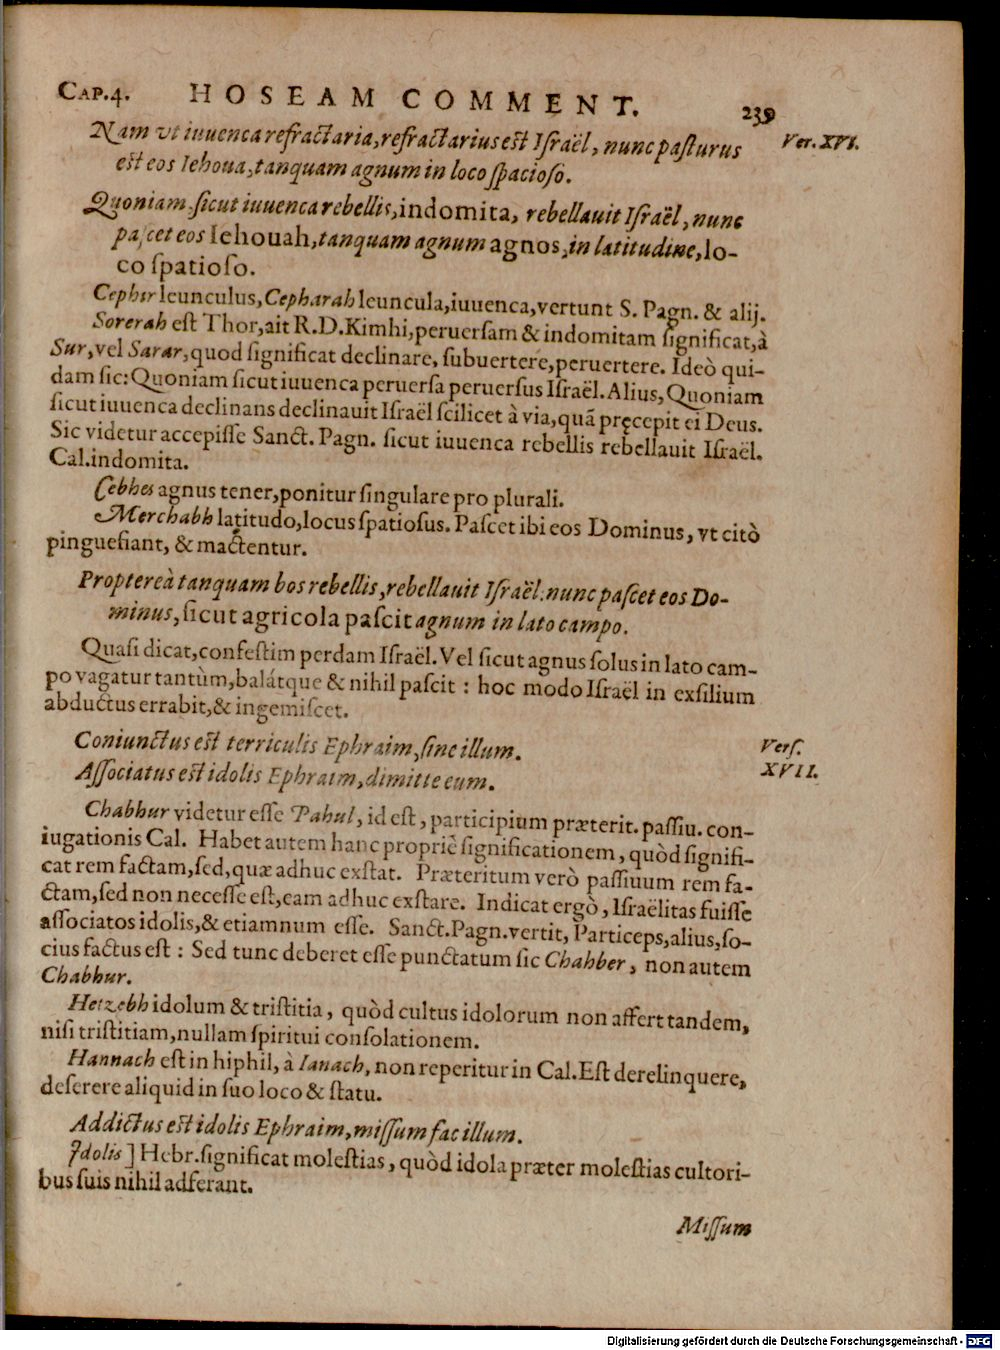 CAP.4. HOSEAM COMMENT. 239
Nam vt iuuenca refractaria, refractarius est Israël, nunc pasturus
Ver. XVI.
est eos Iehoua, tanquam agnum in loco spacioso.
Quoniam sicut iuuenca rebellis, indomita, rebellauit Israël, nunc
pascet eos Iehouah, tanquam agnum agnos, in latitudine, lo-
co spatioso.
Cephir leunculus, Cepharah leuncula, iuuenca, vertunt S. Pagn. & alij.
Sorerah est Thor, ait R. D. Kimhi, peruersam & indomitam significat, à
Sur, vel Sarar, quod significat declinare, subuertere, peruertere. Ideò qui-
dam sic: Quoniam sicut iuuenca peruersa peruersus Israël. Alius, Quoniam
sicut iuuenca declinans declinauit Israël scilicet à via, quã pręcepit ei Deus.
Sic videtur accepisse Sanct. Pagn. sicut iuuenca rebellis rebellauit Israël.
Cal. indomita.
Cebhes agnus tener, ponitur singulare pro plurali.
Merchabh latitudo, locus spatiosus. Pascet ibi eos Dominus, vt citò
pinguefiant, & mactentur.
Propterеà tanquam bos rebellis, rebellauit Israël: nunc pascet eos Do-
minus, sicut agricola pascit agnum in lato campo.
Quasi dicat, confestim perdam Israël. Vel sicut agnus solus in lato cam-
po vagatur tantùm, balátque & nihil pascit : hoc modo Israël in exsilium
abductus errabit, & ingemiscet.
Coniunctus est terriculis Ephraim, sine illum.
Vers.
XVII.
Associatus est idolis Ephraim, dimitte eum.
Chabhur videtur esse Pahul, id est, participium præterit. passiu. con-
iugationis Cal. Habet autem hanc propriè significationem, quòd signifi-
cat rem factam, sed, quæ adhuc exstat. Præteritum verò passiuum rem fa-
ctam, sed non necesse est, eam adhuc exstare. Indicat ergò, Israëlitas fuisse
associatos idolis, & etiamnum esse. Sanct. Pagn. vertit, Particeps, alius, so-
cius factus est : Sed tunc deberet esse punctatum sic Chahber, non autem
Chabhur.
Hetzebh idolum & tristitia, quòd cultus idolorum non affert tandem,
nisi tristitiam, nullam spiritui consolationem.
Hannach est in hiphil, à Ianach, non reperitur in Cal. Est derelinquere,
deserere aliquid in suo loco & statu.
Addictus est idolis Ephraim, missum fac illum.
Idolis ] Hebr. significat molestias, quòd idola præter molestias cultori-
bus suis nihil adferant.
Missum
Digitalisierung gefördert durch die Deutsche Forschungsgemeinschaft - DFG